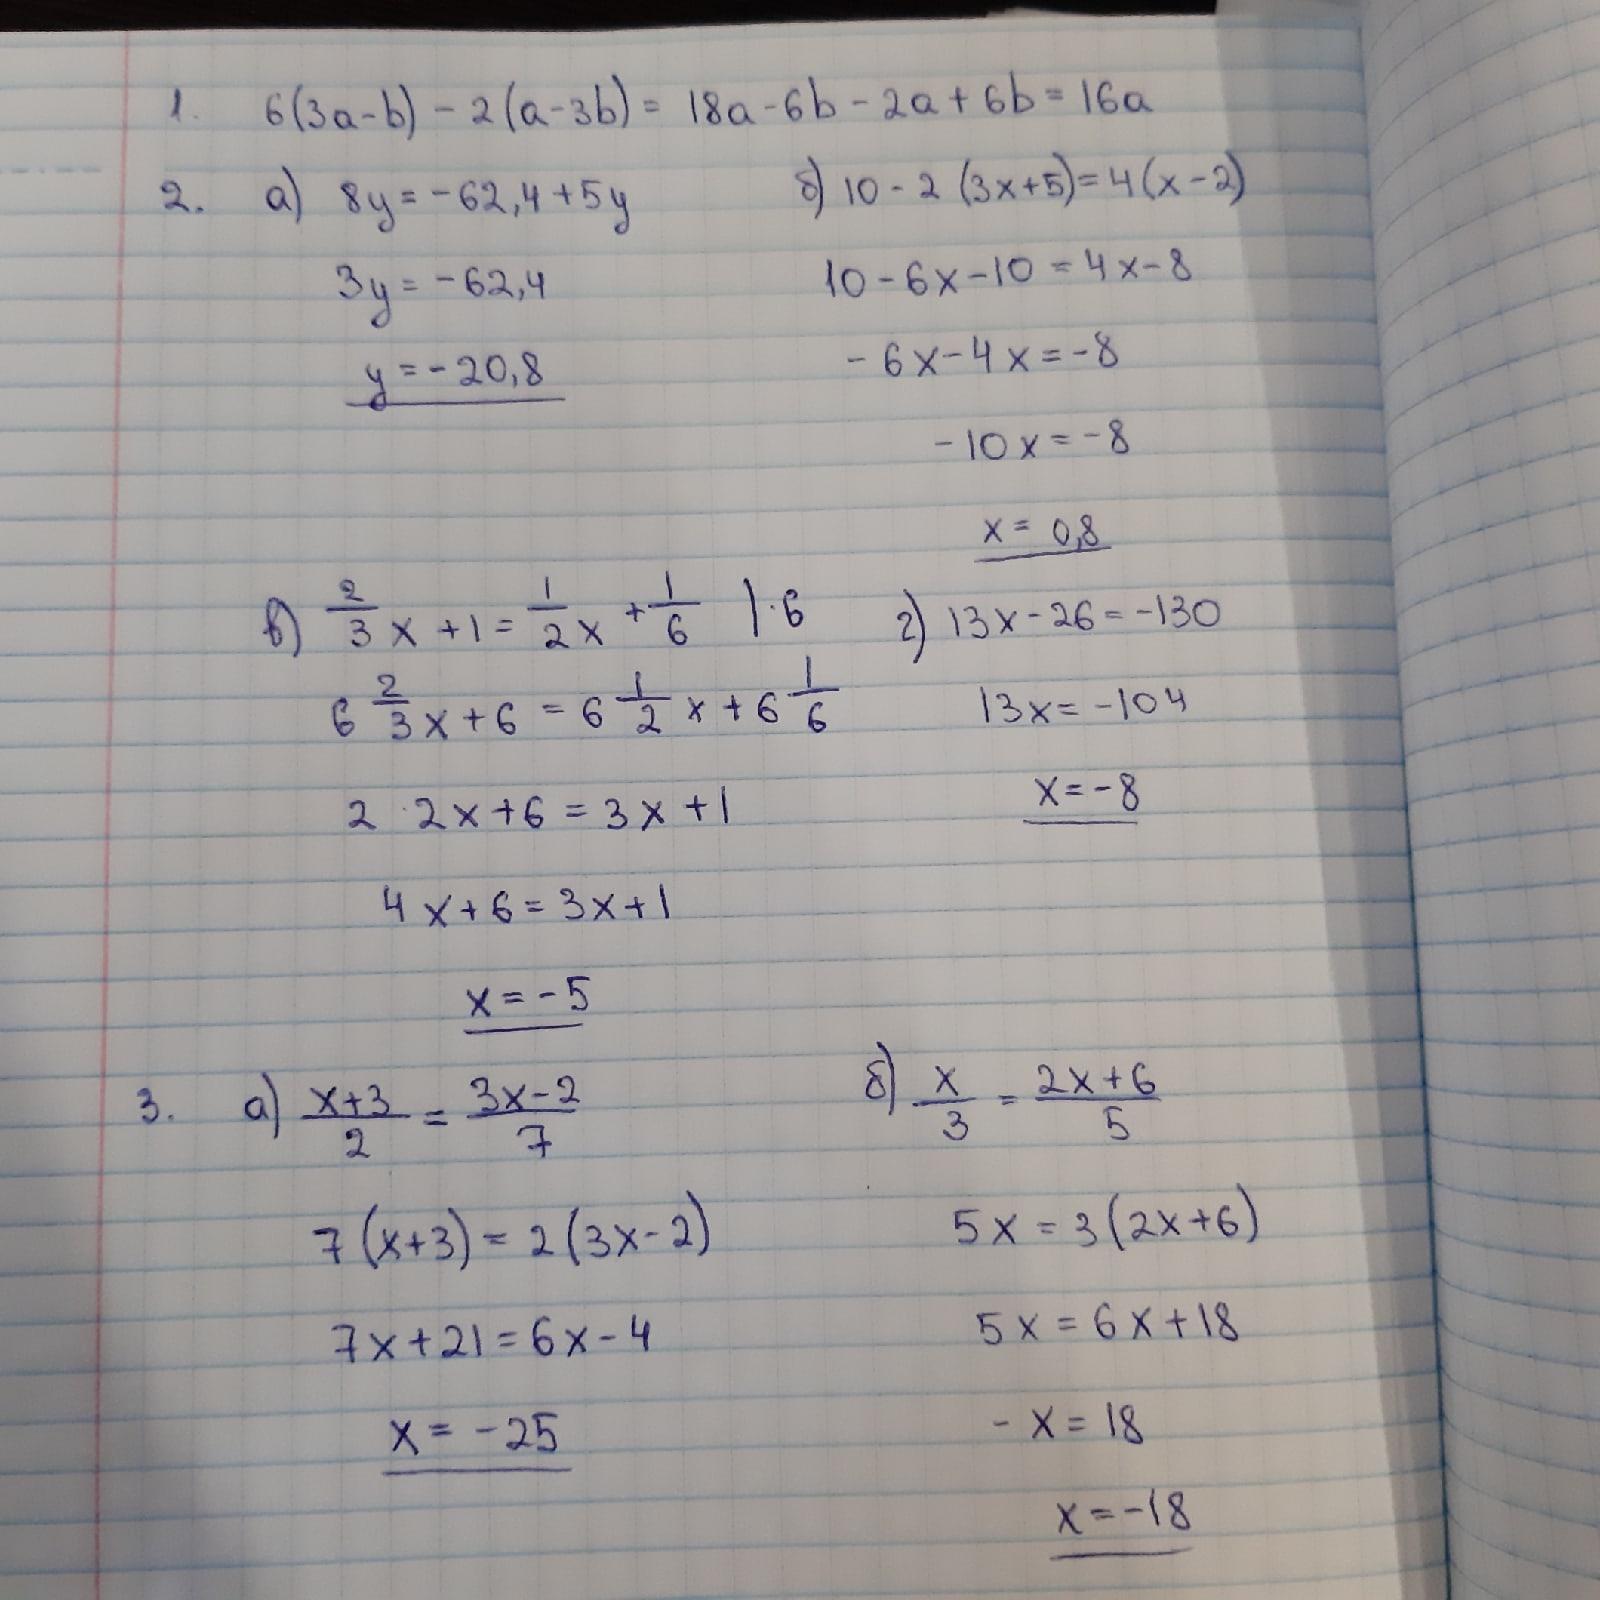 1. 6(3a-b) - 2(a-3b) = 18a - 6b - 2a + 6b = 16a
2. а) 8y = -62,4 + 5y
3y = -62,4
y = -20,8
б) 10 - 2(3x+5) = 4(x-2)
10 - 6x - 10 = 4x - 8
- 6x - 4x = -8
- 10x = -8
x = 0,8
в) 2/3 x + 1 = 1/2 x + 1/6 | · 6
6 2/3 x + 6 = 6 1/2 x + 6 1/6
2 · 2x + 6 = 3x + 1
4x + 6 = 3x + 1
x = -5
г) 13x - 26 = -130
13x = -104
x = -8
3. а) (x+3)/2 = (3x-2)/7
7(x+3) = 2(3x-2)
7x + 21 = 6x - 4
x = -25
б) x/3 = (2x+6)/5
5x = 3(2x+6)
5x = 6x + 18
- x = 18
x = -18